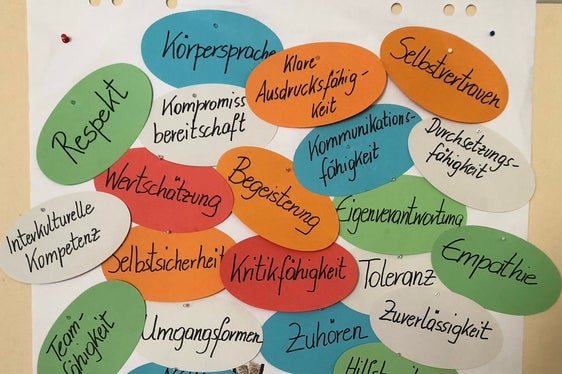 Körpersprache
Klare
Ausdrucksfähig-
keit
Selbstvertrauen
Respekt
Kompromiss
bereitschaft
Kommunikations-
fähigkeit
Durchsetzungs-
fähigkeit
Wertschätzung
Begeisterung
Eigenverantwortung
Interkulturelle
Kompetenz
Selbstsicherheit
Kritikfähigkeit
Toleranz
Empathie
Team-
fähigkeit
Umgangsformen
Zuhören
Zuverlässigkeit